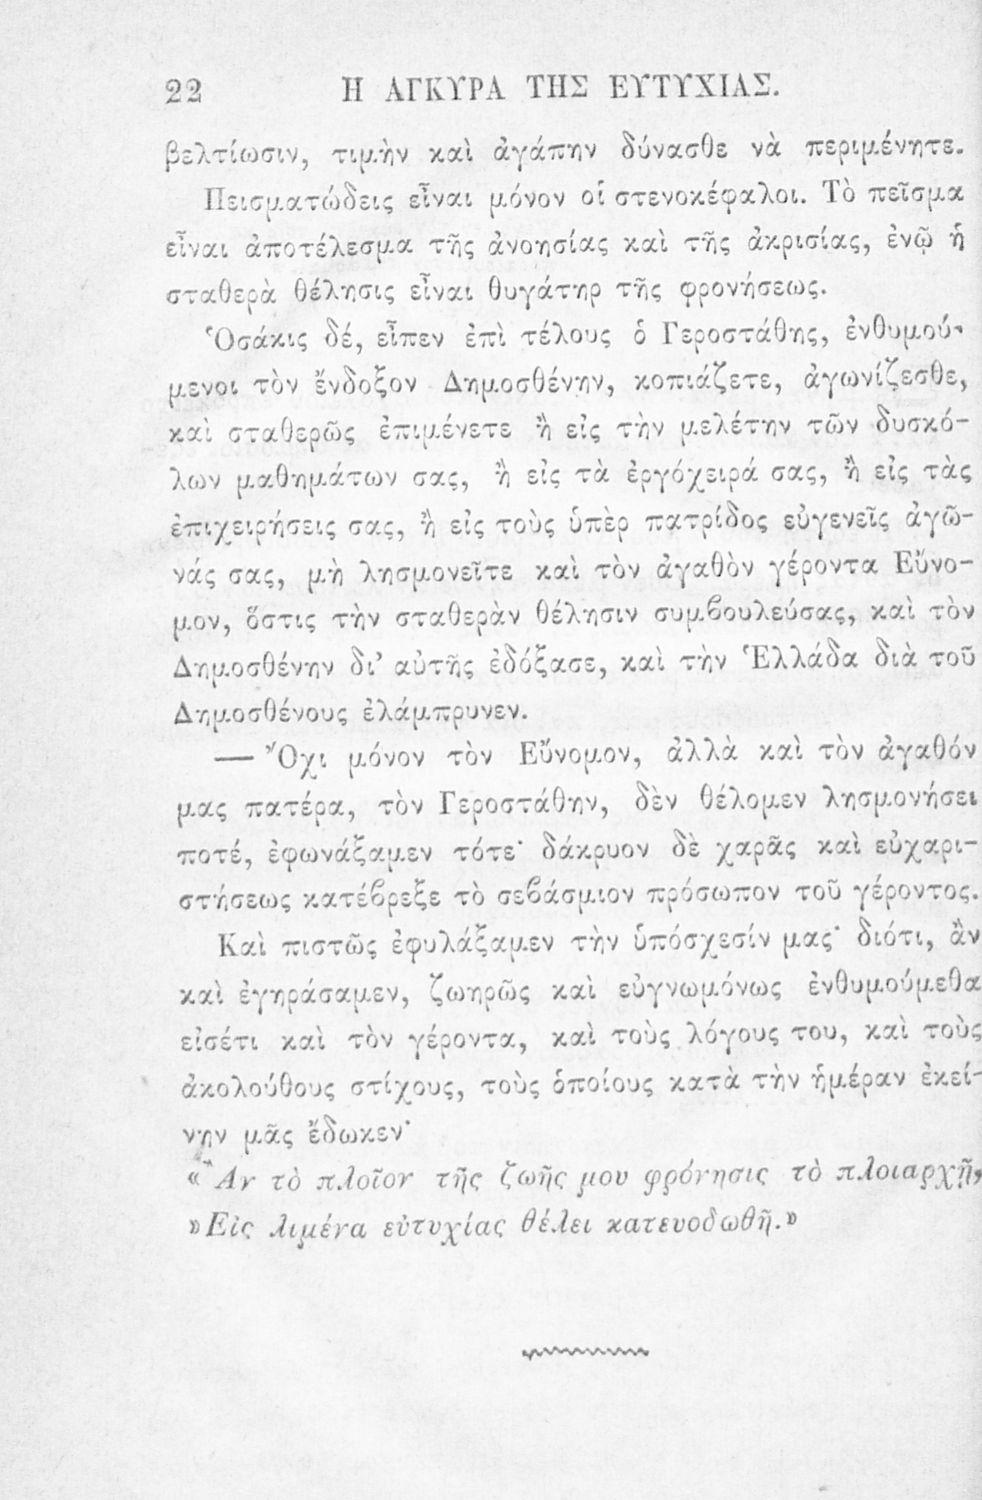 22 Η ΑΓΚΥΡΑ ΤΗΣ ΕΥΤΥΧΙΑΣ.
βελτίωσιν, τιμὴν καὶ ἀγάπην δύνασθε νὰ περιμένητε.
Πεισματώδεις εἶναι μόνον οἱ στενοκέφαλοι. Τὸ πεῖσμα
εἶναι ἀποτέλεσμα τῆς ἀνοησίας καὶ τῆς ἀκρισίας, ἐνῷ ἡ
σταθερὰ θέλησις εἶναι θυγάτηρ τῆς φρονήσεως.
Ὁσάκις δέ, εἶπεν ἐπὶ τέλους ὁ Γεροστάθης, ἐνθυμού-
μενοι τὸν ἔνδοξον Δημοσθένην, κοπιάζετε, ἀγωνίζεσθε,
καὶ σταθερῶς ἐπιμένετε ἢ εἰς τὴν μελέτην τῶν δυσκό-
λων μαθημάτων σας, ἢ εἰς τὰ ἐργόχειρά σας, ἢ εἰς τὰς
ἐπιχειρήσεις σας, ἢ εἰς τοὺς ὑπὲρ πατρίδος εὐγενεῖς ἀγῶ-
νάς σας, μὴ λησμονεῖτε καὶ τὸν ἀγαθὸν γέροντα Εὔνο-
μον, ὅστις τὴν σταθερὰν θέλησιν συμϐουλεύσας, καὶ τὸν
Δημοσθένην δι’ αὐτῆς ἐδόξασε, καὶ τὴν Ἑλλάδα διὰ τοῦ
Δημοσθένους ἐλάμπρυνεν.
— Ὄχι μόνον τὸν Εὔνομον, ἀλλὰ καὶ τὸν ἀγαθόν
μας πατέρα, τὸν Γεροστάθην, δὲν θέλομεν λησμονήσει
ποτέ, ἐφωνάξαμεν τότε· δάκρυον δὲ χαρᾶς καὶ εὐχαρι-
στήσεως κατέϐρεξε τὸ σεϐάσμιον πρόσωπον τοῦ γέροντος.
Καὶ πιστῶς ἐφυλάξαμεν τὴν ὑπόσχεσίν μας· διότι, ἂν
καὶ ἐγηράσαμεν, ζωηρῶς καὶ εὐγνωμόνως ἐνθυμούμεθα
εἰσέτι καὶ τὸν γέροντα, καὶ τοὺς λόγους του, καὶ τοὺς
ἀκολούθους στίχους, τοὺς ὁποίους κατὰ τὴν ἡμέραν ἐκεί-
νην μᾶς ἔδωκεν·
«Ἂν τὸ πλοῖον τῆς ζωῆς μου φρόνησις τὸ πλοιαρχῇ,
»Εἰς λιμένα εὐτυχίας θέλει κατευοδωθῆ.»